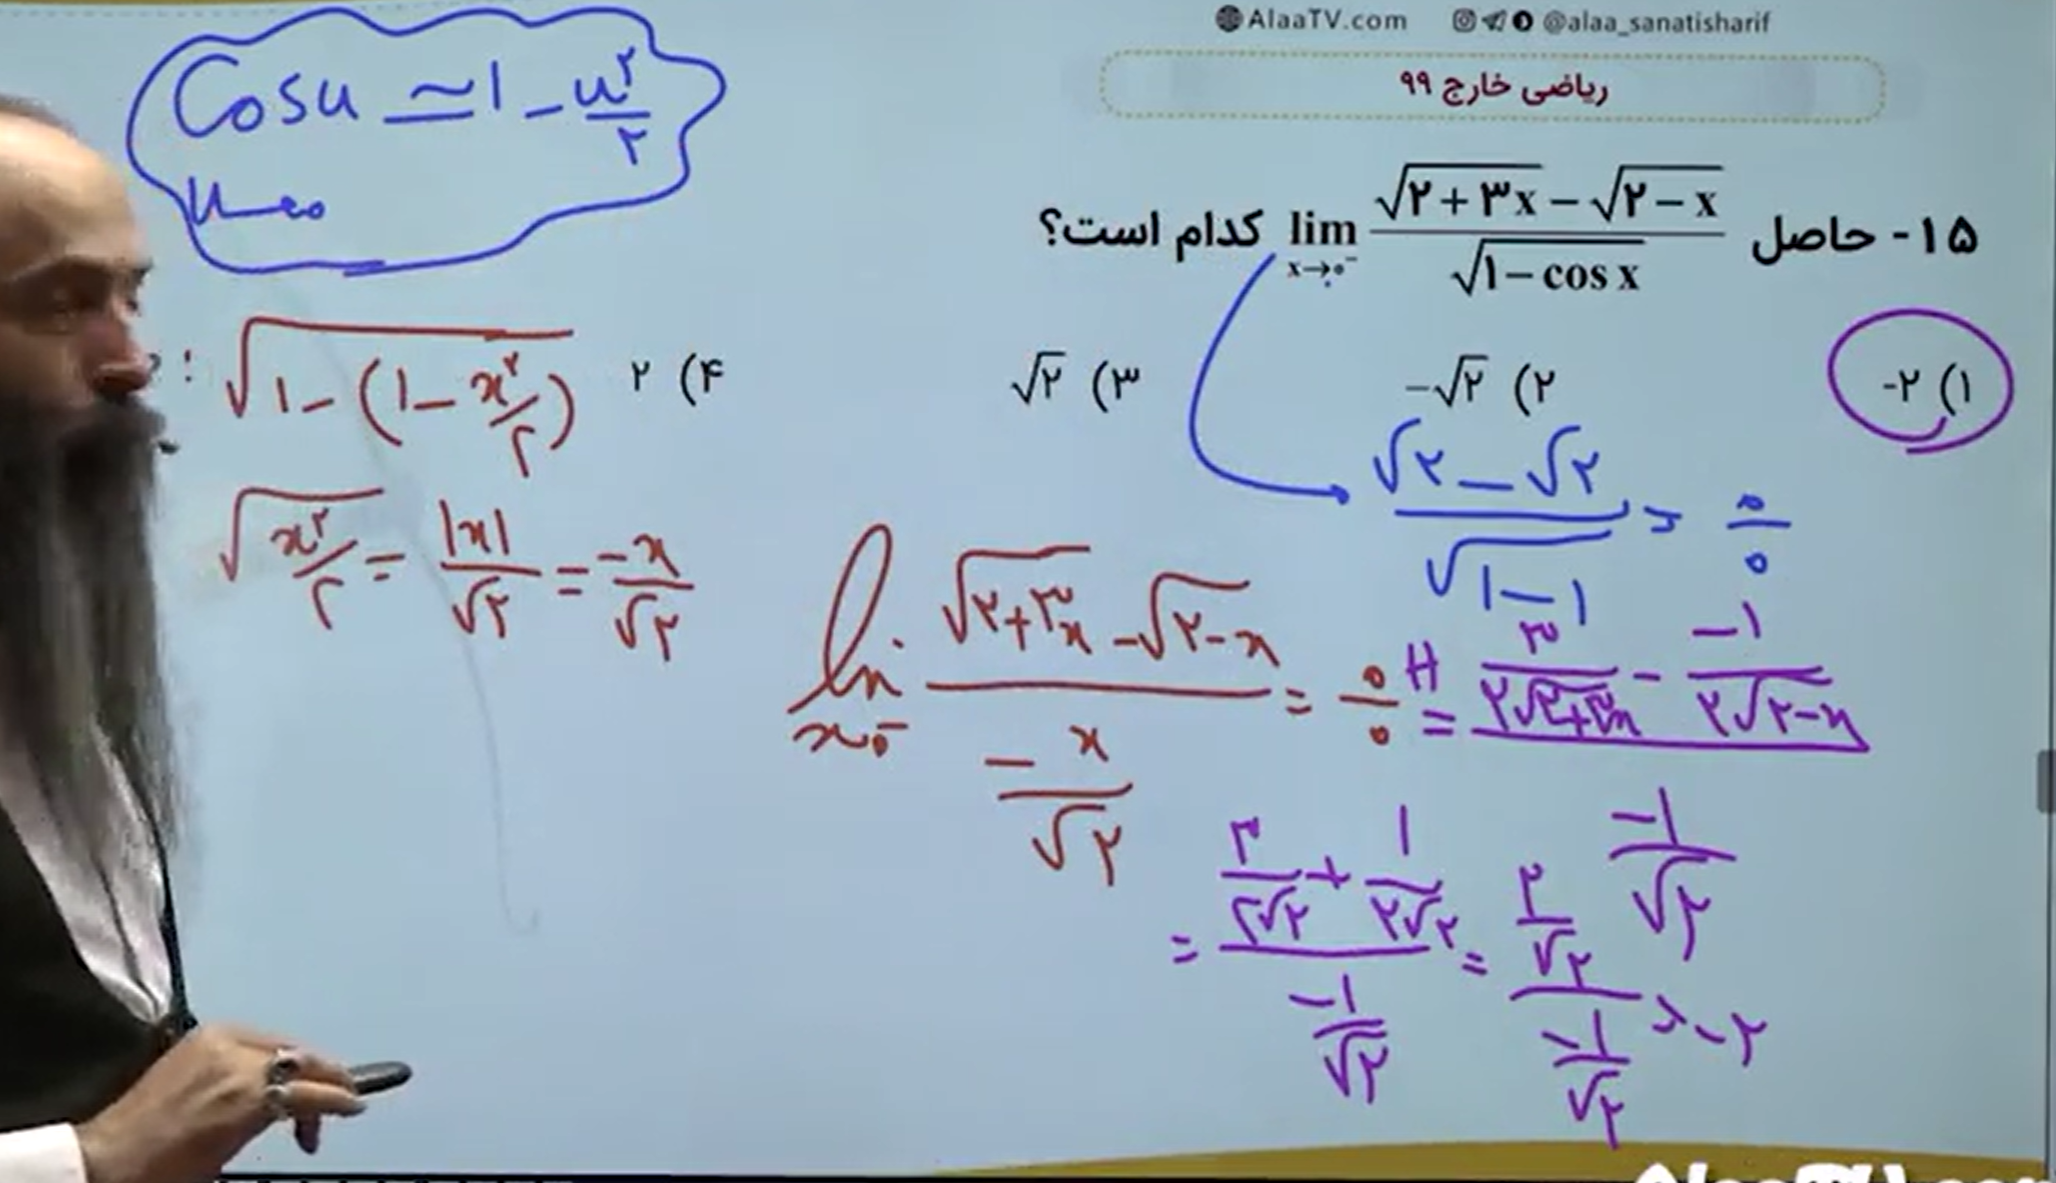 AlaaTV.com @alaa_sanatisharif
ریاضی خارج ۹۹
۱۵- حاصل lim x→۰⁻ (√(۲+۳x) − √(۲−x)) / √(۱−cos x) کدام است؟
۱) -۲
۲) -√۲
۳) √۲
۴) ۲
Cos u ≃ 1 - u^۲/۲
u→۰
: √(1-(1-x^۲/۲))
√(x^۲/۲) = |x|/√۲ = -x/√۲
(√۲-√۲)/√(1-1) = ۰/۰
lim x→۰⁻ (√(۲+۳x) - √(۲-x)) / (-x/√۲) = ۰/۰ H= (۳/(۲√(۲+۳x)) - -1/(۲√(۲-x))) / (-1/√۲)
= (۳/(۲√۲) + 1/(۲√۲)) / (-1/√۲) = (۲/√۲) / (-1/√۲) = -۲